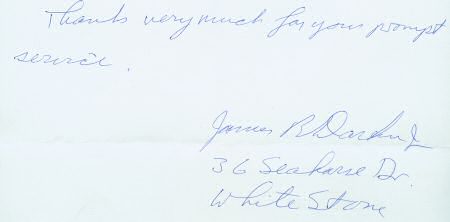 Thanks very much for your prompt
service.
James R
36 Seahorse Dr.
White Stone